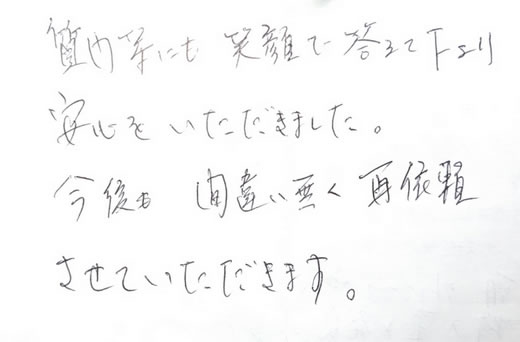 質問等にも 笑顔で 答えて下さり
安心を いただきました。
今後も 間違い無く 再依頼
させていただきます。